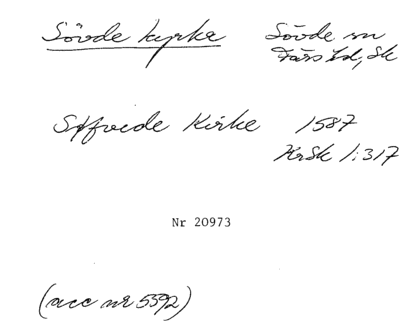 Sövde kyrka Sövde sn
Färs hd, Sk
Kirke 1587
KrSk 1:317
Nr 20973
(acc nr 5392)